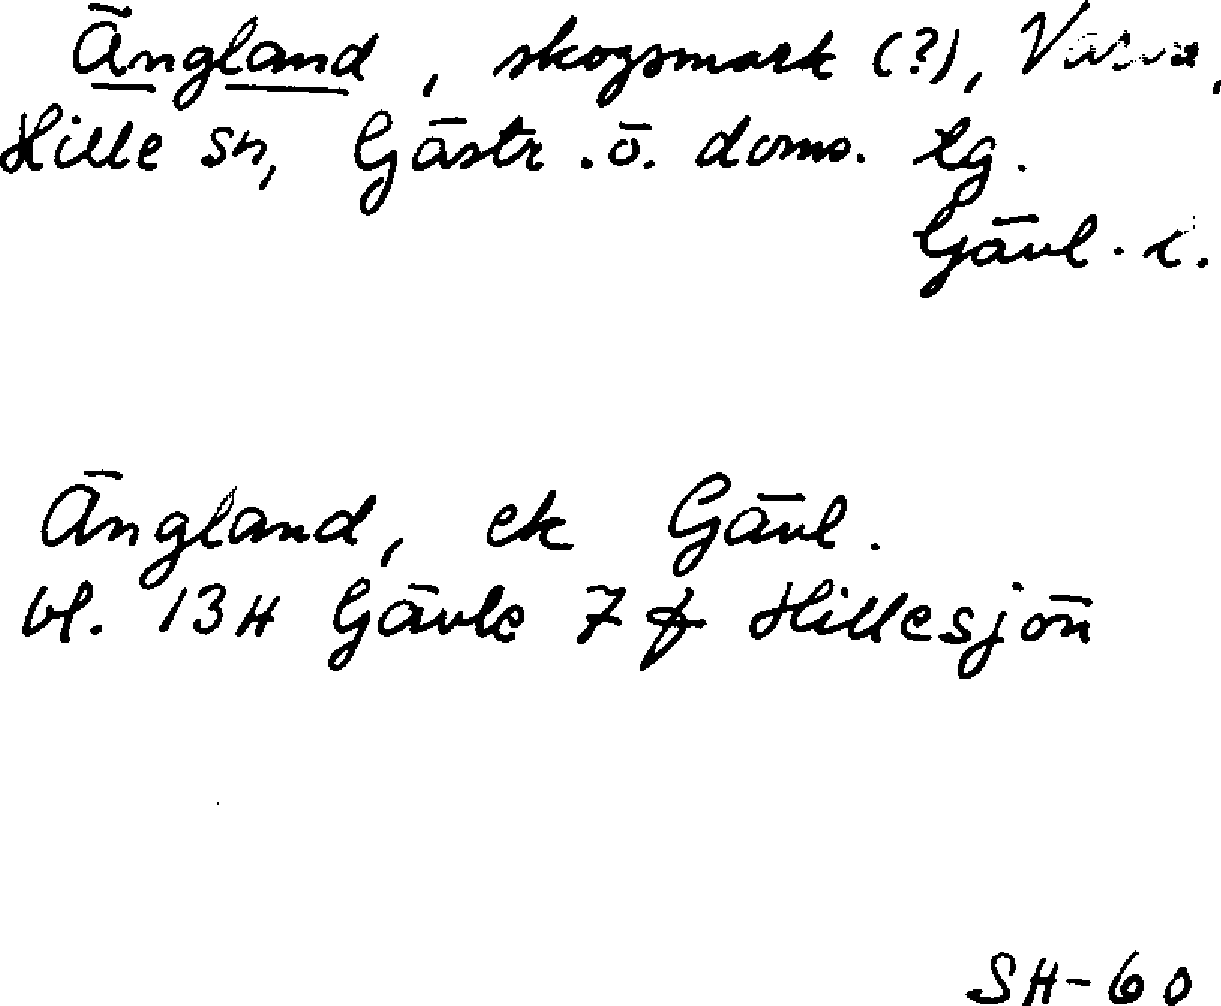 Ängland, skogsmark (?),
Hille sn, Gästr. ö. doms. tg.
Gävl. l.
Ängland, ek Gävl.
bl. 13H Gävle 7 f Hillesjön
SH-60